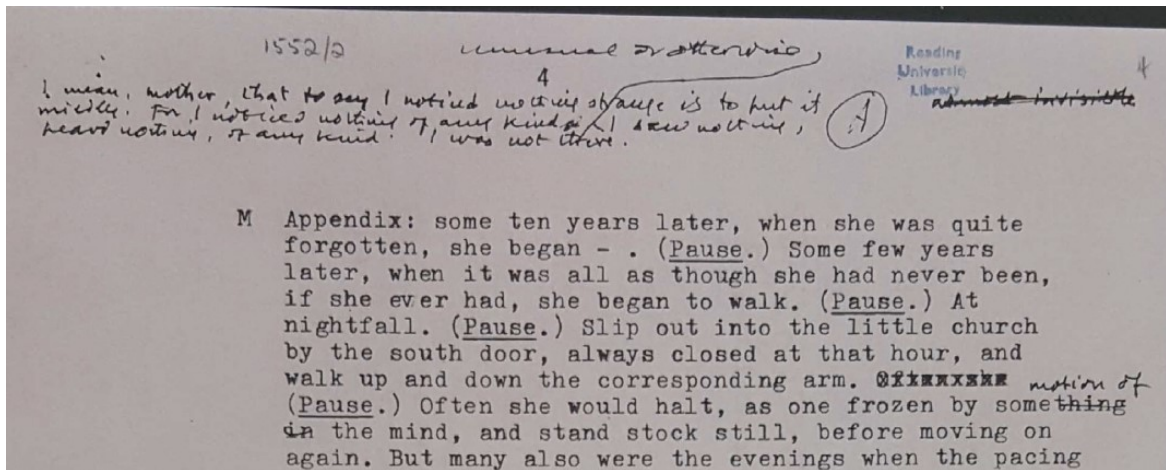 1552/2 unusual or otherwise,
Reading
University
Library
4
4
almost invisible
I mean, mother, that to say I noticed nothing strange is to put it
mildly. For I noticed nothing of any kind. I saw nothing,
heard nothing, of any kind. I was not there.
A
M Appendix: some ten years later, when she was quite
forgotten, she began - . (Pause.) Some few years
later, when it was all as though she had never been,
if she ever had, she began to walk. (Pause.) At
nightfall. (Pause.) Slip out into the little church
by the south door, always closed at that hour, and
walk up and down the corresponding arm.
motion of
(Pause.) Often she would halt, as one frozen by something
in the mind, and stand stock still, before moving on
again. But many also were the evenings when the pacing